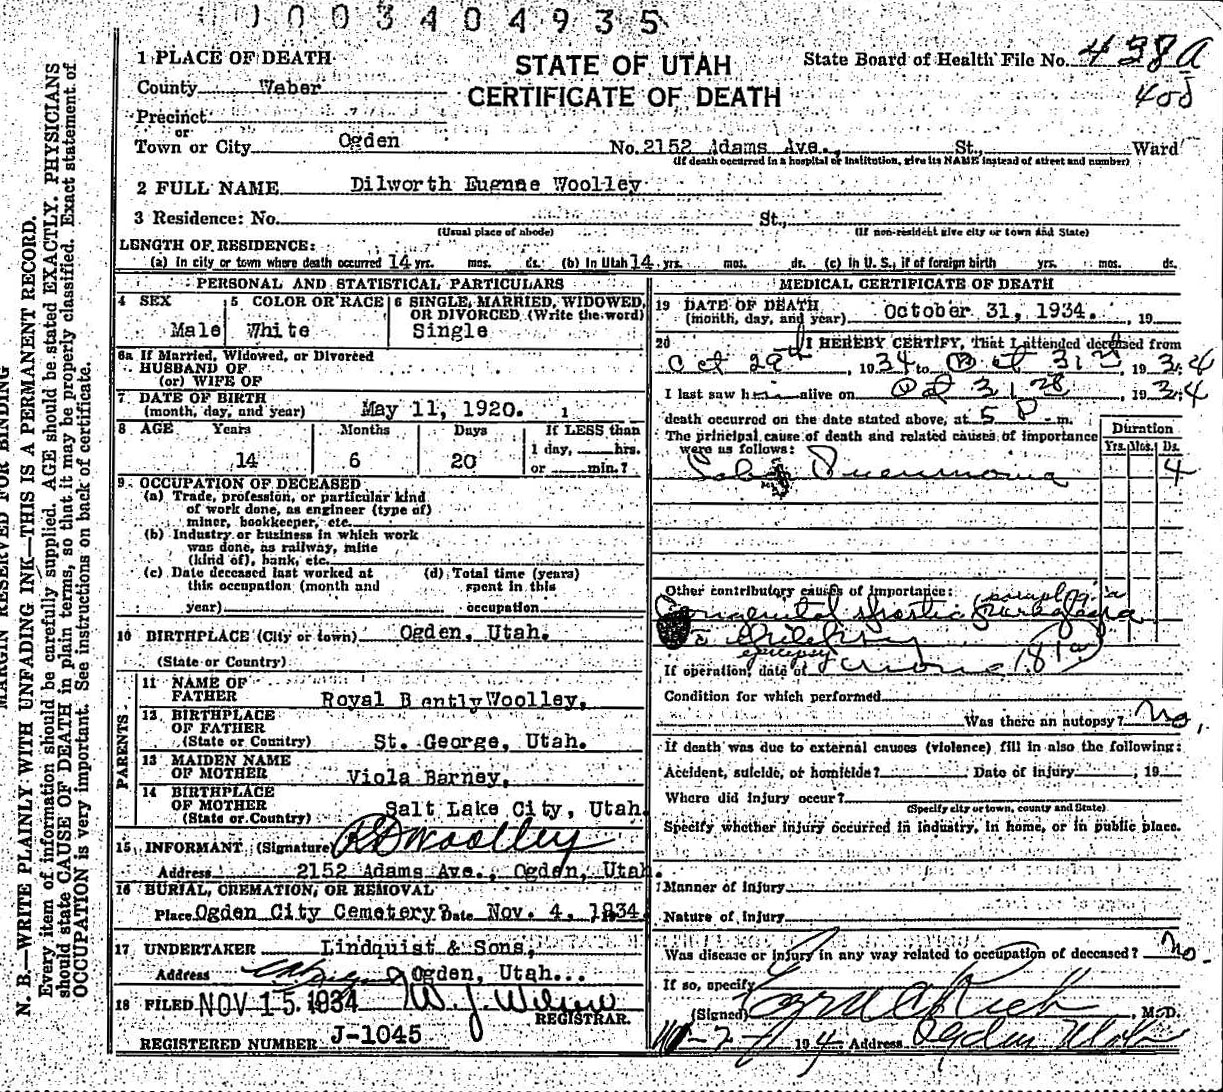 0003404935
1 PLACE OF DEATH
STATE OF UTAH
CERTIFICATE OF DEATH
State Board of Health File No. 438A
400
County Weber
Precinct
or
Town or City Ogden No. 2152 Adams Ave., St., Ward
(If death occurred in a hospital or institution, give its NAME instead of street and number)
2 FULL NAME Dilworth Eugnae Woolley
3 Residence: No. St.,
(Usual place of abode) (If non-resident give city or town and State)
LENGTH OF RESIDENCE:
(a) In city or town where death occurred 14 yrs. mos. ds. (b) In Utah 14 yrs. mos. ds. (c) In U. S., if of foreign birth yrs. mos. ds.
PERSONAL AND STATISTICAL PARTICULARS
4 SEX Male
5 COLOR OR RACE White
6 SINGLE, MARRIED, WIDOWED, OR DIVORCED (Write the word) Single
6a If Married, Widowed, or Divorced
HUSBAND OF
(or) WIFE OF
7 DATE OF BIRTH
(month, day, and year) May 11, 1920. 1
8 AGE Years Months Days If LESS than
14 6 20 1 day, hrs.
or min.?
9 OCCUPATION OF DECEASED
(a) Trade, profession, or particular kind
of work done, as engineer (type of)
miner, bookkeeper, etc.
(b) Industry or business in which work
was done, as railway, mine
(kind of), bank, etc.
(c) Date deceased last worked at
this occupation (month and
year)
(d) Total time (years)
spent in this
occupation
10 BIRTHPLACE (City or town) Ogden, Utah.
(State or Country)
PARENTS
11 NAME OF
FATHER Royal Bently Woolley.
12 BIRTHPLACE
OF FATHER
(State or Country) St. George, Utah.
13 MAIDEN NAME
OF MOTHER Viola Barney,
14 BIRTHPLACE
OF MOTHER
(State or Country) Salt Lake City, Utah.
15 INFORMANT (Signature) R B Woolley
Address 2152 Adams Ave., Ogden, Utah.
16 BURIAL, CREMATION, OR REMOVAL
Place Ogden City Cemetery Date Nov. 4, 1934.
17 UNDERTAKER Lindquist & Sons,
Address Ogden, Utah...
18 FILED NOV 15 1934 W. J. Wilson
REGISTRAR.
REGISTERED NUMBER J-1045
MEDICAL CERTIFICATE OF DEATH
19 DATE OF DEATH
(month, day, and year) October 31, 1934. , 19
20 I HEREBY CERTIFY, That I attended deceased from
Oct 29th, 1934 to Oct 31st, 1934
I last saw him alive on Oct 31st, 1934
death occurred on the date stated above, at 5 P m.
The principal cause of death and related causes of importance
were as follows:
Duration
Yrs. Mos. Ds.
Lobar Pneumonia 4
Other contributory causes of importance:
paraplegia
Congenital spastic paraplegia
epilepsy
If operation, date of none
Condition for which performed
Was there an autopsy? No.
If death was due to external causes (violence) fill in also the following:
Accident, suicide, or homicide? Date of injury , 19
Where did injury occur?
(Specify city or town, county and State)
Specify whether injury occurred in industry, in home, or in public place.
Manner of injury
Nature of injury
Was disease or injury in any way related to occupation of deceased? No.
If so, specify
(Signed) Ezra C Rich, M.D.
19 Address Ogden Utah
MARGIN RESERVED FOR BINDING
N. B.—WRITE PLAINLY WITH UNFADING INK—THIS IS A PERMANENT RECORD.
Every item of information should be carefully supplied. AGE should be stated EXACTLY. PHYSICIANS
should state CAUSE OF DEATH in plain terms, so that it may be properly classified. Exact statement of
OCCUPATION is very important. See instructions on back of certificate.